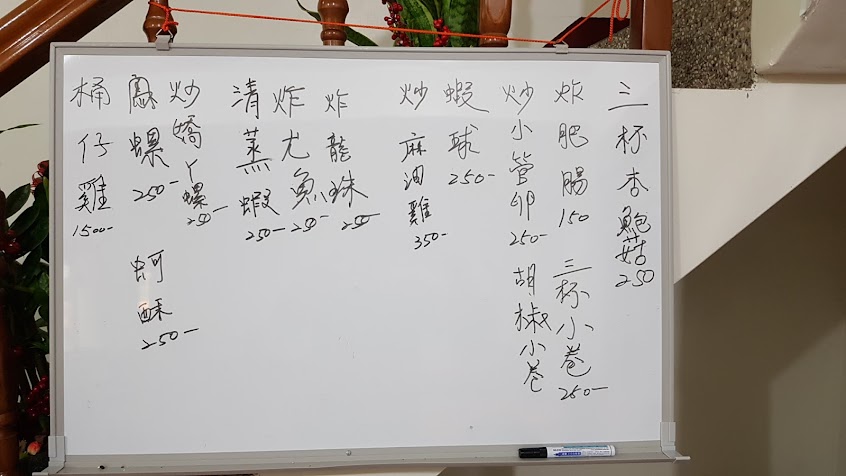 三杯杏鮑菇250
炸肥腸150
三杯小卷250-
炒小管卵250-
胡椒小卷
蝦球250-
炒麻油雞350-
炸龍珠250-
炸尤魚250-
清蒸蝦250-
炒嬌ㄚ螺250-
鳳螺250-
蚵酥250-
桶仔雞1500-